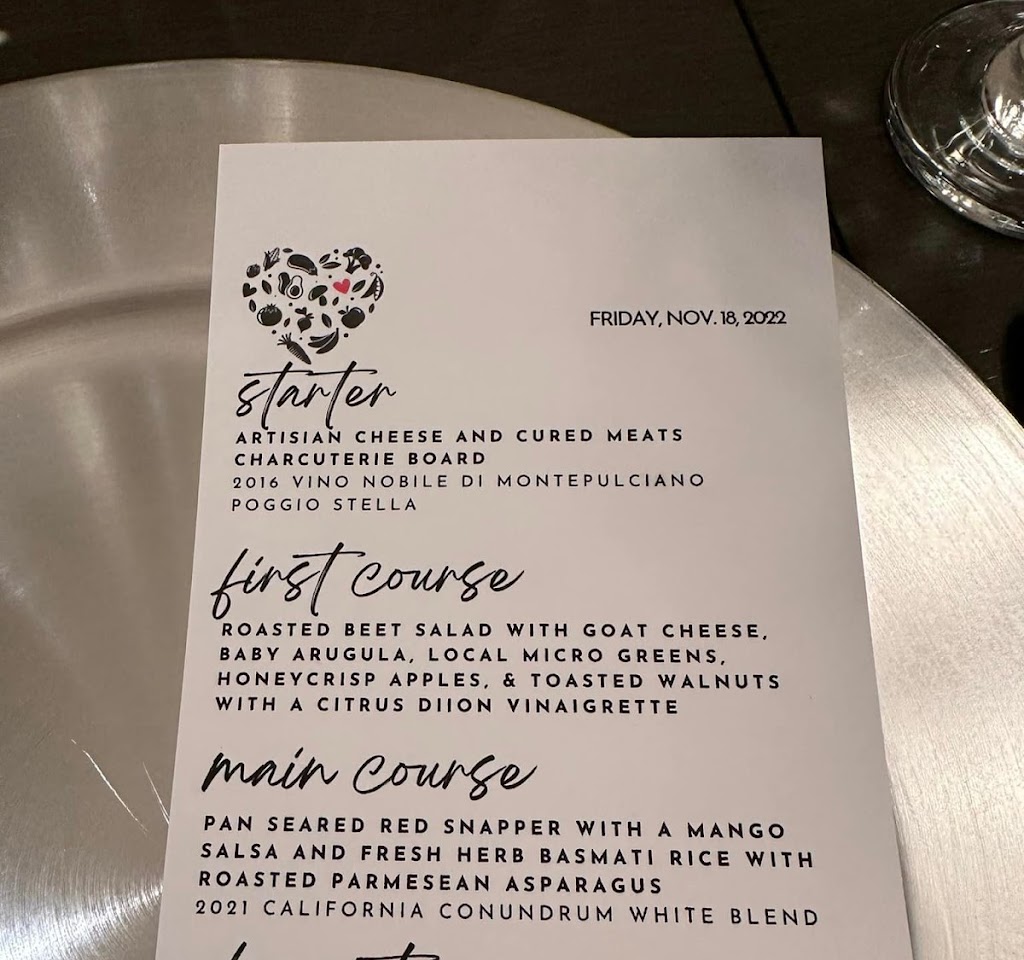 FRIDAY, NOV. 18, 2022
starter
ARTISIAN CHEESE AND CURED MEATS
CHARCUTERIE BOARD
2016 VINO NOBILE DI MONTEPULCIANO
POGGIO STELLA
first course
ROASTED BEET SALAD WITH GOAT CHEESE,
BABY ARUGULA, LOCAL MICRO GREENS,
HONEYCRISP APPLES, & TOASTED WALNUTS
WITH A CITRUS DIION VINAIGRETTE
main course
PAN SEARED RED SNAPPER WITH A MANGO
SALSA AND FRESH HERB BASMATI RICE WITH
ROASTED PARMESEAN ASPARAGUS
2021 CALIFORNIA CONUNDRUM WHITE BLEND